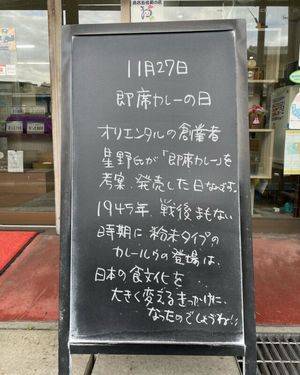 11月27日
即席カレーの日
オリエンタルの創業者
星野氏が「即席カレー」を
考案、発売した日なんです。
1945年、戦後まもない
時期に粉末タイプの
カレールウの登場は、
日本の食文化を
大きく変えるきっかけに、
なったのでしょうね!!